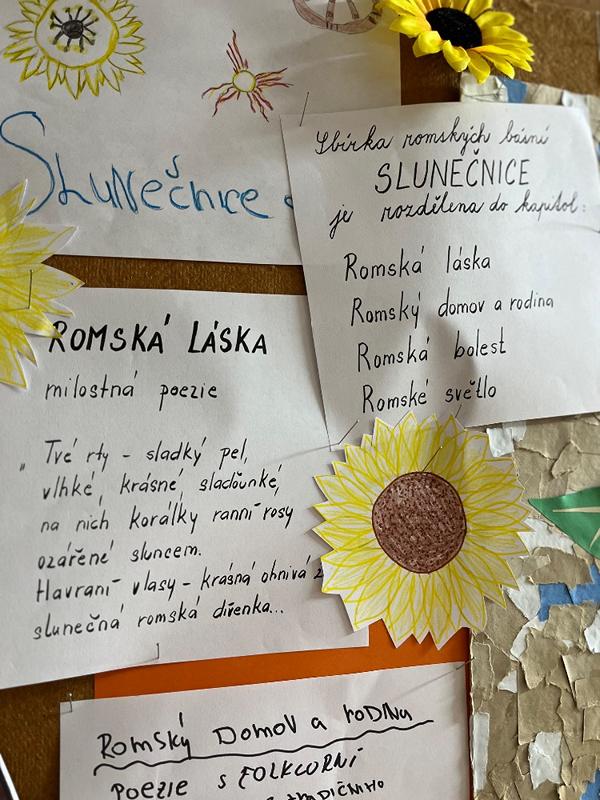 Slunečnice
Sbírka romských básní
SLUNEČNICE
je rozdělena do kapitol:
Romská láska
Romský domov a rodina
Romská bolest
Romské světlo
ROMSKÁ LÁSKA
milostná poezie
„Tvé rty – sladký pel,
vlhké, krásné, sladounké,
na nich korálky ranní rosy
ozářené sluncem.
Havraní vlasy – krásná ohnivá
slunečná romská dívenka...
Romský Domov a roDina
Poezie s FOLKLORNÍ